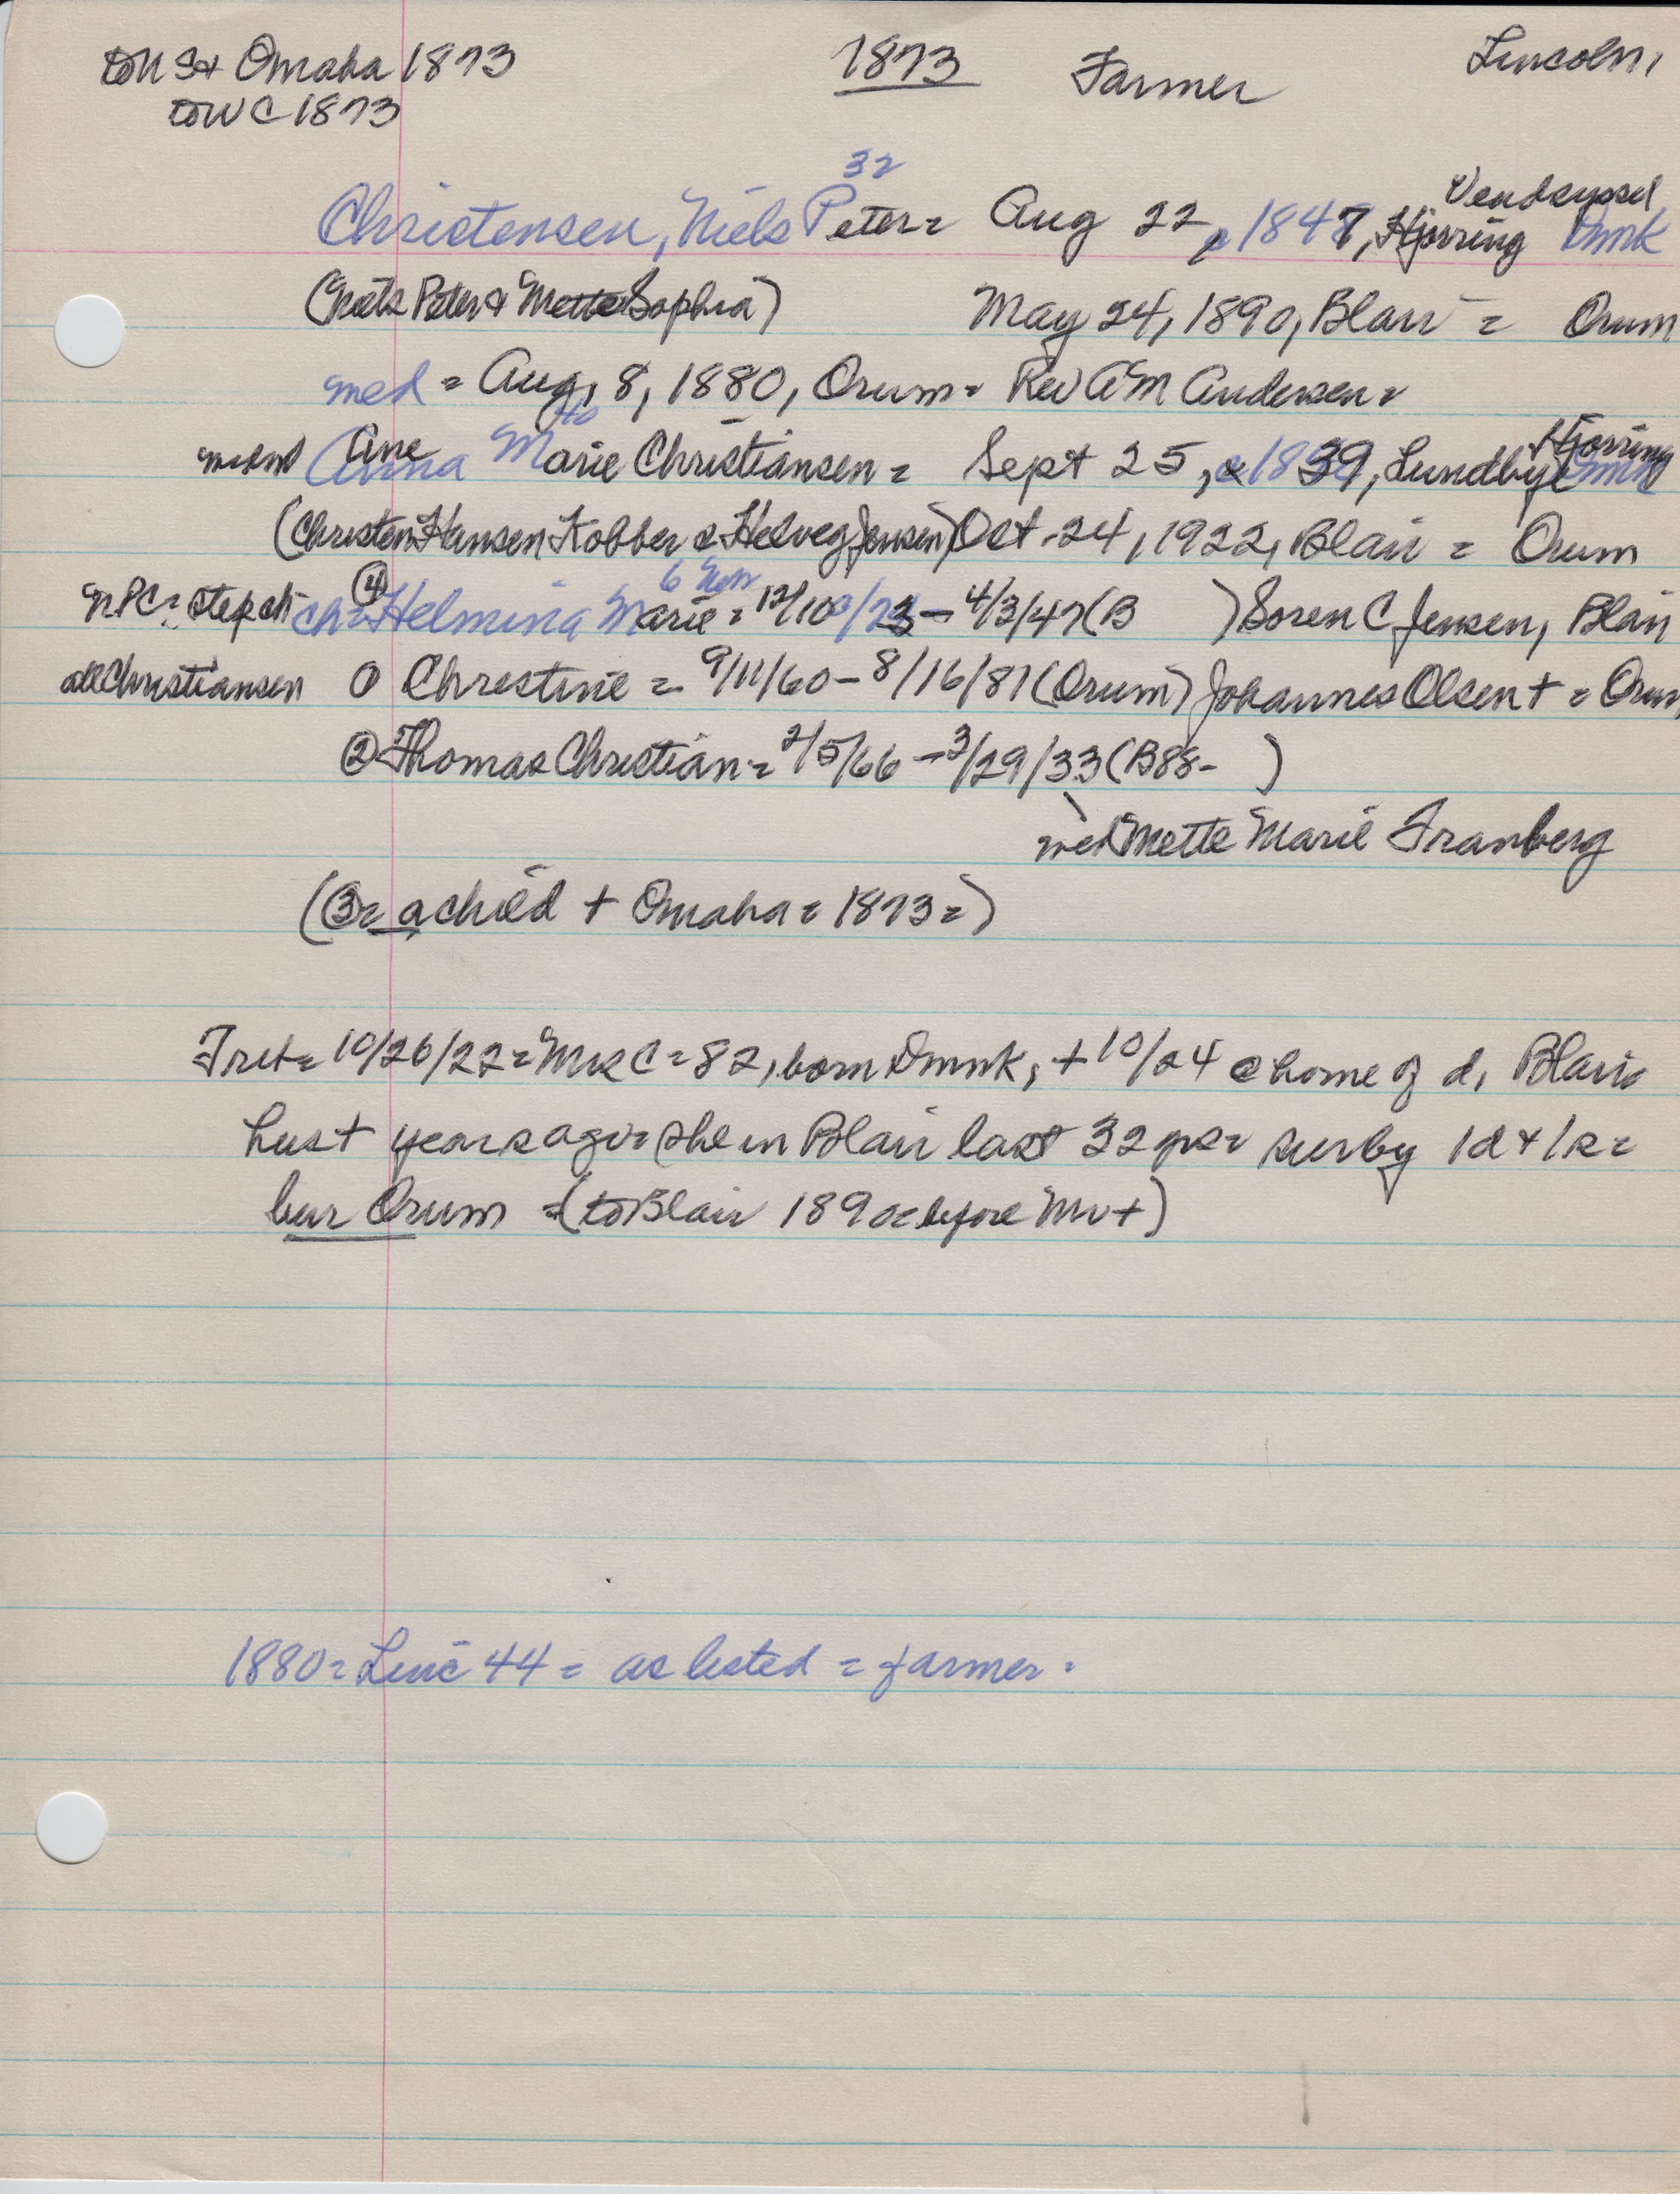 to US + Omaha 1873 1873 Farmer Lincoln,
to WC 1873
32
Vendsyssel
Christensen, Niels Peter = Aug 22, 1847, Hjorring Dmk
(Niels Peter & Mette Sophia) May 24, 1890, Blair = Orum
med = Aug, 8, 1880, Orum = Rev A M Andersen =
40 Hjorring
Ane
Anna Marie Christiansen = Sept 25, 1839, Lundbye
(Christen Hansen Kobber & Helveg Jensen) Oct. 24, 1922, Blair = Orum
④ 6 Neb
NPC = step ch ch = Helmina Marie = 12/10/73 - 4/3/47 (B ) Soren C Jensen, Blair
all Christiansen ① Christine = 9/11/60 - 8/16/81 (Orum) Johannes Olsen + = Orum
② Thomas Christian = 2/5/66 - 3/29/33 (B88- )
med Mette Marie Franberg
(3 = a child + Omaha = 1873 =)
Trib = 10/26/22 = Mrs C = 82, born Dmk, + 10/24 @ home of d, Blair
Hus + years ago = she in Blair last 32 yrs = sur by 1d + 1s =
bur Orum = (to Blair 1890 before Mr +)
1880 = Linc 44 = as listed = farmer.